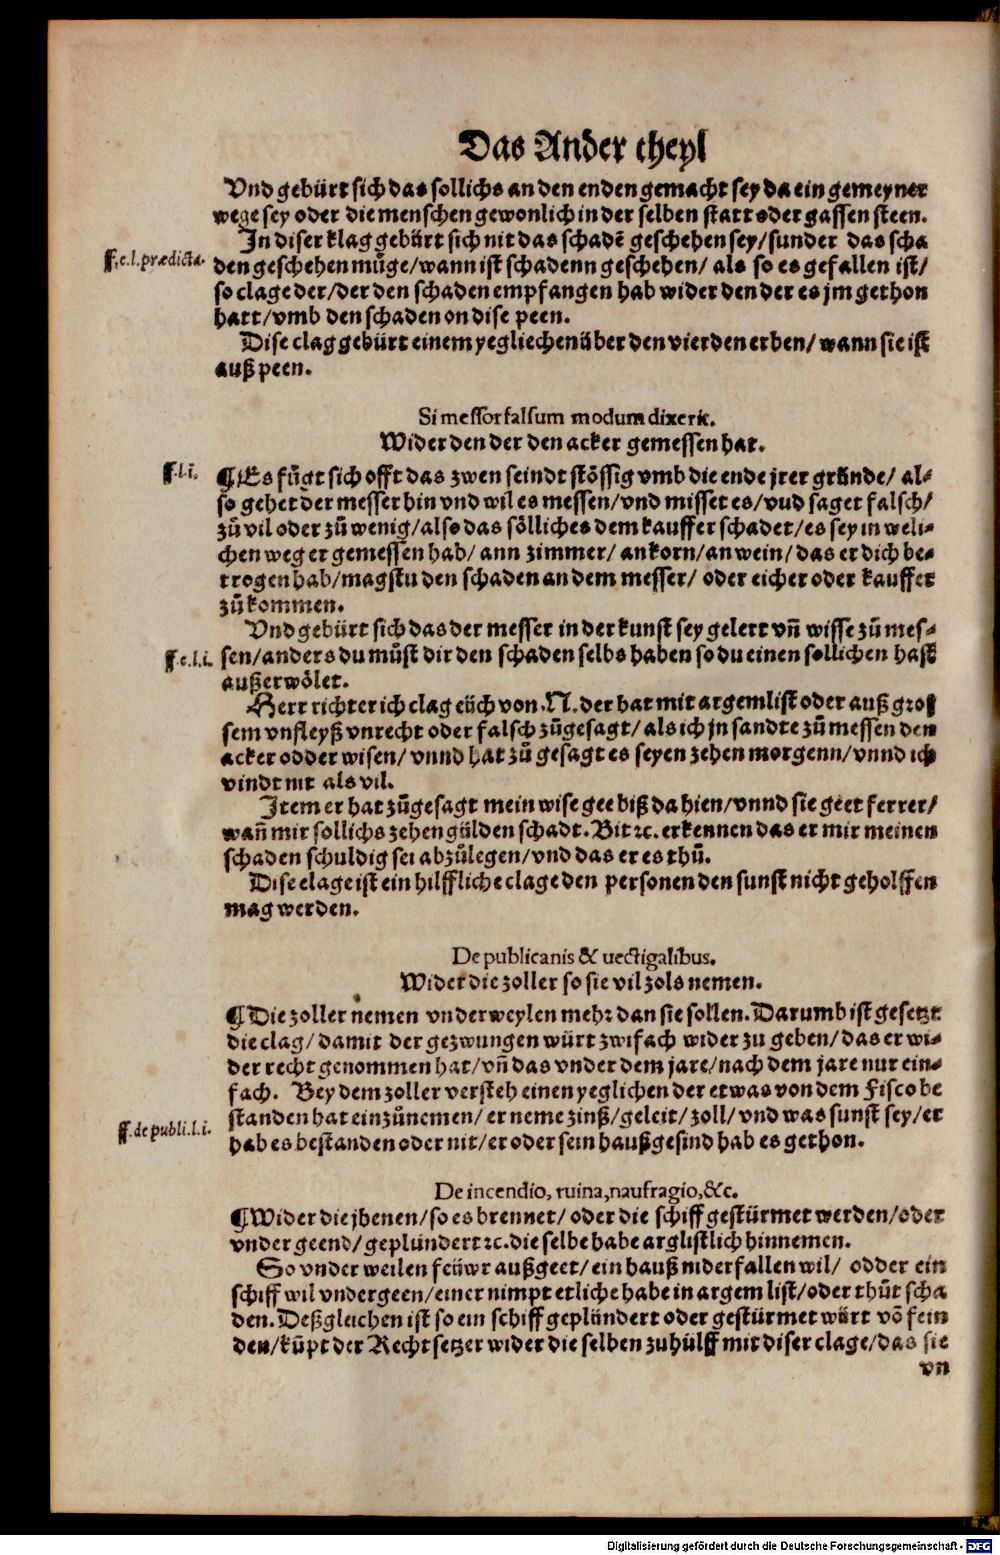 Das Ander theyl
Vnd gebürt sich das sollichs an den enden gemacht sey da ein gemeyner
wege sey oder die menschen gewonlich in der selben statt oder gassen steen.
In diser klag gebürt sich nit das schadē geschehen sey/sunder das scha
den geschehen müge/wann ist schadenn geschehen/ als so es gefallen ist/
so clage der/der den schaden empfangen hab wider den der es jm gethon
hatt/vmb den schaden on dise peen.
ff.e.l.prædicta.
Dise clag gebürt einem yegliechen über den vierden erben/ wann sie ist
auß peen.
Si messor falsum modum dixerit.
Wider den der den acker gemessen hat.
ff.l.i.
¶Es fügt sich offt das zwen seindt stössig vmb die ende jrer gründe/ al-
so gehet der messer hin vnd wil es messen/vnd misset es/vnd saget falsch/
zů vil oder zů wenig/also das sölliches dem kauffer schadet/es sey in weli-
chen weg er gemessen hab/ ann zimmer/ an korn/an wein/das er dich be-
trogen hab/magstu den schaden an dem messer/ oder eicher oder kauffer
zů kommen.
Vnd gebürt sich das der messer in der kunst sey gelert vñ wisse zů mes-
sen/anders du můst dir den schaden selbs haben so du einen sollichen hast
außerwölet.
ff.e.l.i.
Herr richter ich clag eüch von .N. der hat mit argemlist oder auß gros
sem vnfleyß vnrecht oder falsch zůgesagt/als ich jn sandte zů messen den
acker odder wisen/ vnnd hat zů gesagt es seyen zehen morgenn/vnnd ich
vindt nit als vil.
Item er hat zůgesagt mein wise gee biß da hien/vnnd sie geet ferrer/
wañ mir sollichs zehen gülden schadt. Bit ꝛc. erkennen das er mir meinen
schaden schuldig sei abzůlegen/vnd das er es thů.
Dise clage ist ein hilffliche clage den personen den sunst nicht geholffen
mag werden.
De publicanis & uectigalibus.
Wider die zoller so sie vil zols nemen.
¶Die zoller nemen vnderweylen mehꝛ dan sie sollen. Darumb ist gesetzt
die clag/damit der gezwungen würt zwifach wider zu geben/das er wi-
der recht genommen hat/vñ das vnder dem jare/nach dem jare nur ein-
fach. Bey dem zoller versteh einen yeglichen der etwas von dem Fisco be
standen hat einzůnemen/ er neme zinß/geleit/zoll/vnd was sunst sey/er
hab es bestanden oder nit/er oder sein haußgesind hab es gethon.
ff.de publi.l.i.
De incendio, ruina, naufragio, &c.
¶Wider die jhenen/so es brennet/oder die schiff gestürmet werden/oder
vnder geend/geplündert ꝛc.die selbe habe arglistlich hinnemen.
So vnder weilen feüwr außgeet/ein hauß niderfallen wil/ odder ein
schiff wil vndergeen/einer nimpt etliche habe in argem list/oder thůt scha
den. Deßgleichen ist so ein schiff geplündert oder gestürmet würt vō fein
den/kůpt der Rechtsetzer wider die selben zuhülff mit diser clage/das sie
vn
Digitalisierung gefördert durch die Deutsche Forschungsgemeinschaft - DFG